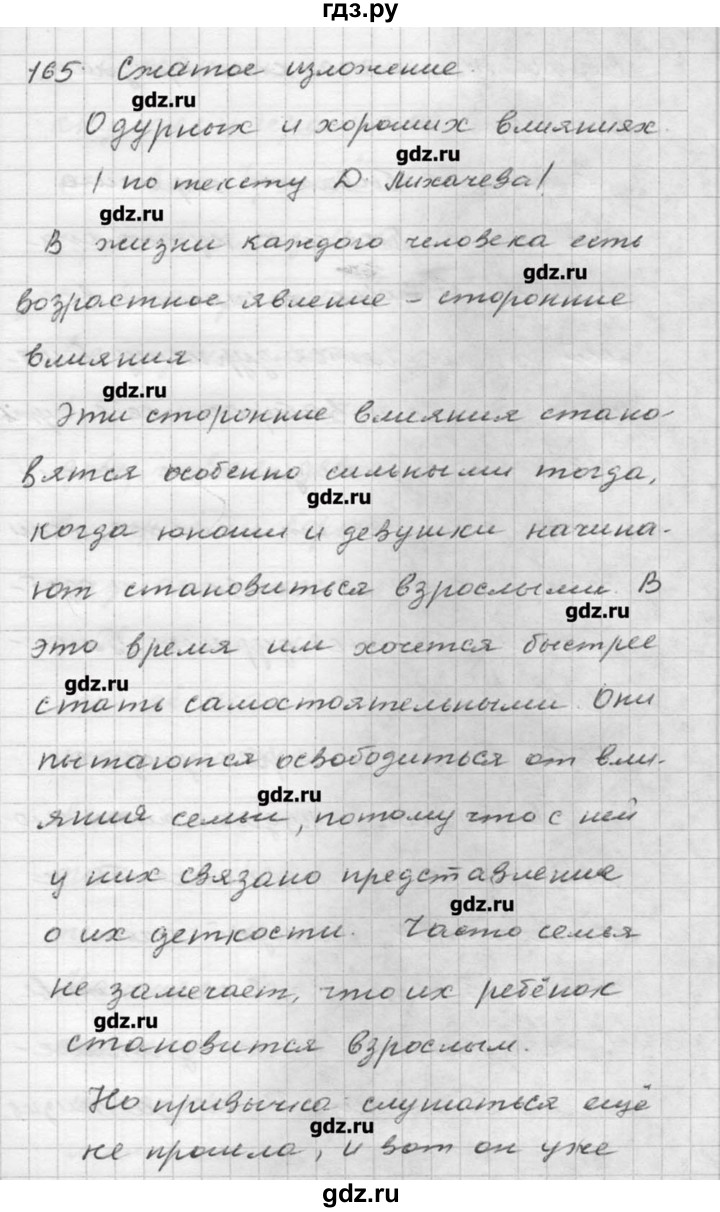 гдз.ру
165. Сжатое изложение.
gdz.ru
О дурных и хороших влияниях.
gdz.ru
/ по тексту Д. Лихачева/
gdz.ru
В жизни каждого человека есть
gdz.ru
возрастное явление – сторонние
влияния
gdz.ru
Эти сторонние влияния стано-
вятся особенно сильными тогда,
gdz.ru
когда юноши и девушки начина-
ют становиться взрослыми. В
gdz.ru
это время им хочется быстрее
gdz.ru
стать самостоятельными. Они
пытаются освободиться от вли-
gdz.ru
яния семьи, потому что с ней
у них связано представления
gdz.ru
о их деткости. Часто семья
не замечает, что их ребёнок
gdz.ru
становится взрослым.
Но привычка слушаться ещё
gdz.ru
не прошла, и вот он уже
gdz.ru